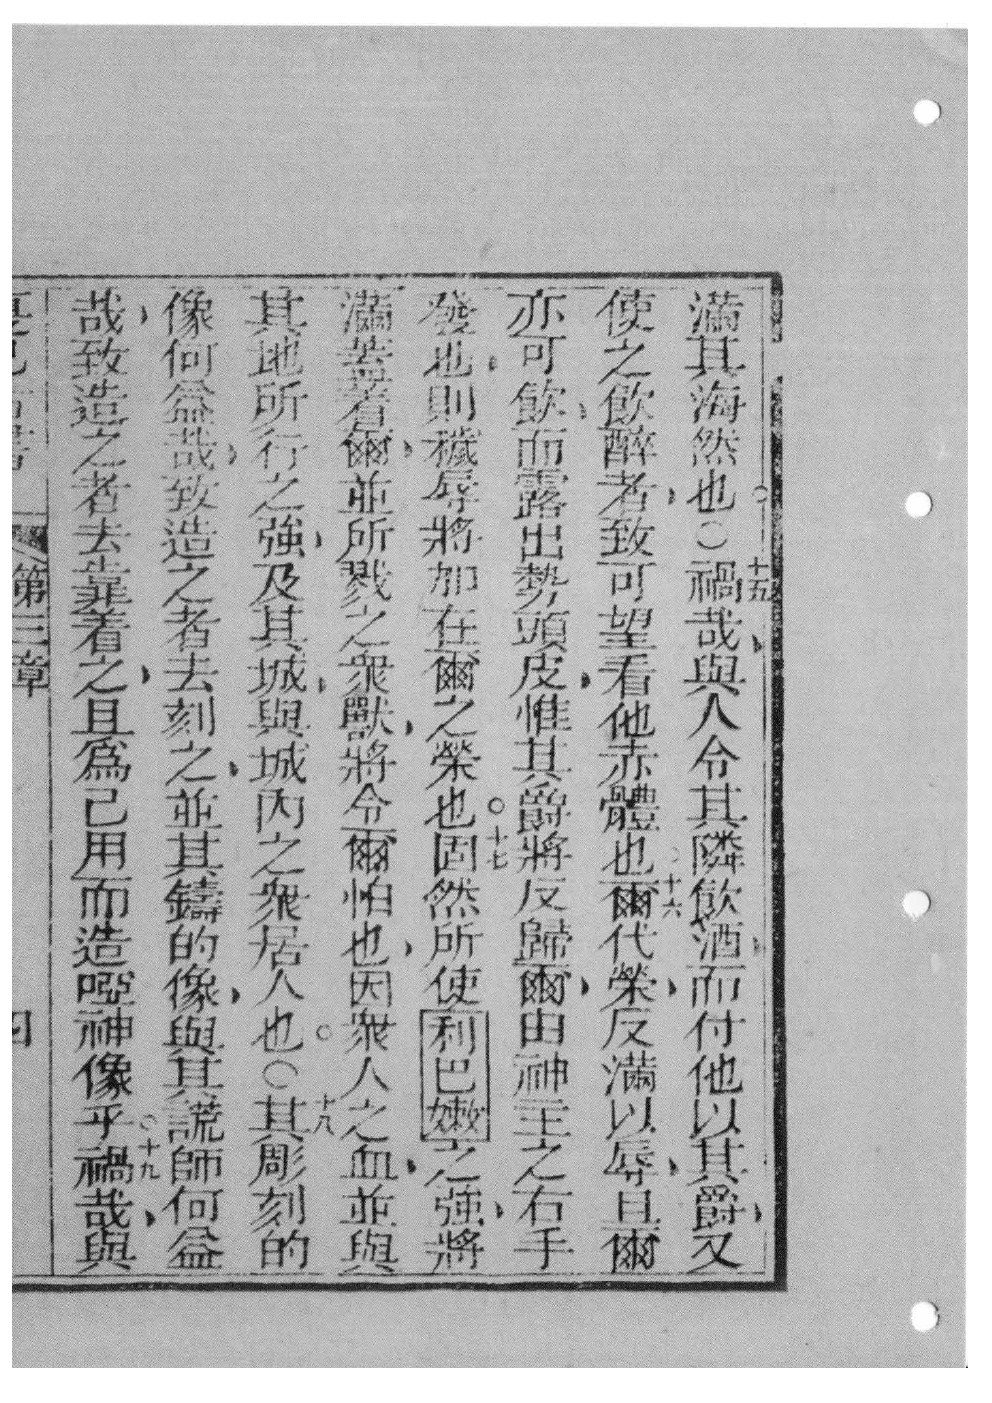 滿其海然也〇十五禍哉與人令其隣飲酒而付他以其爵又
使之飲醉者致可望看他赤體也十六爾代榮反滿以辱且爾
亦可飲而露出勢頭皮惟其爵將反歸爾由神主之右手
發也則穢辱將加在爾之榮也十七固然所使利巴嫩之強將
滿蓋着爾並所戮之衆獸將令爾怕也因衆人之血並與
其地所行之強及其城與城內之衆居人也〇十八其彫刻的
像何益哉致造之者去刻之並其鑄的像與其謊師何益
哉致造之者去靠着之且為己用而造啞神像乎十九禍哉與
第三章